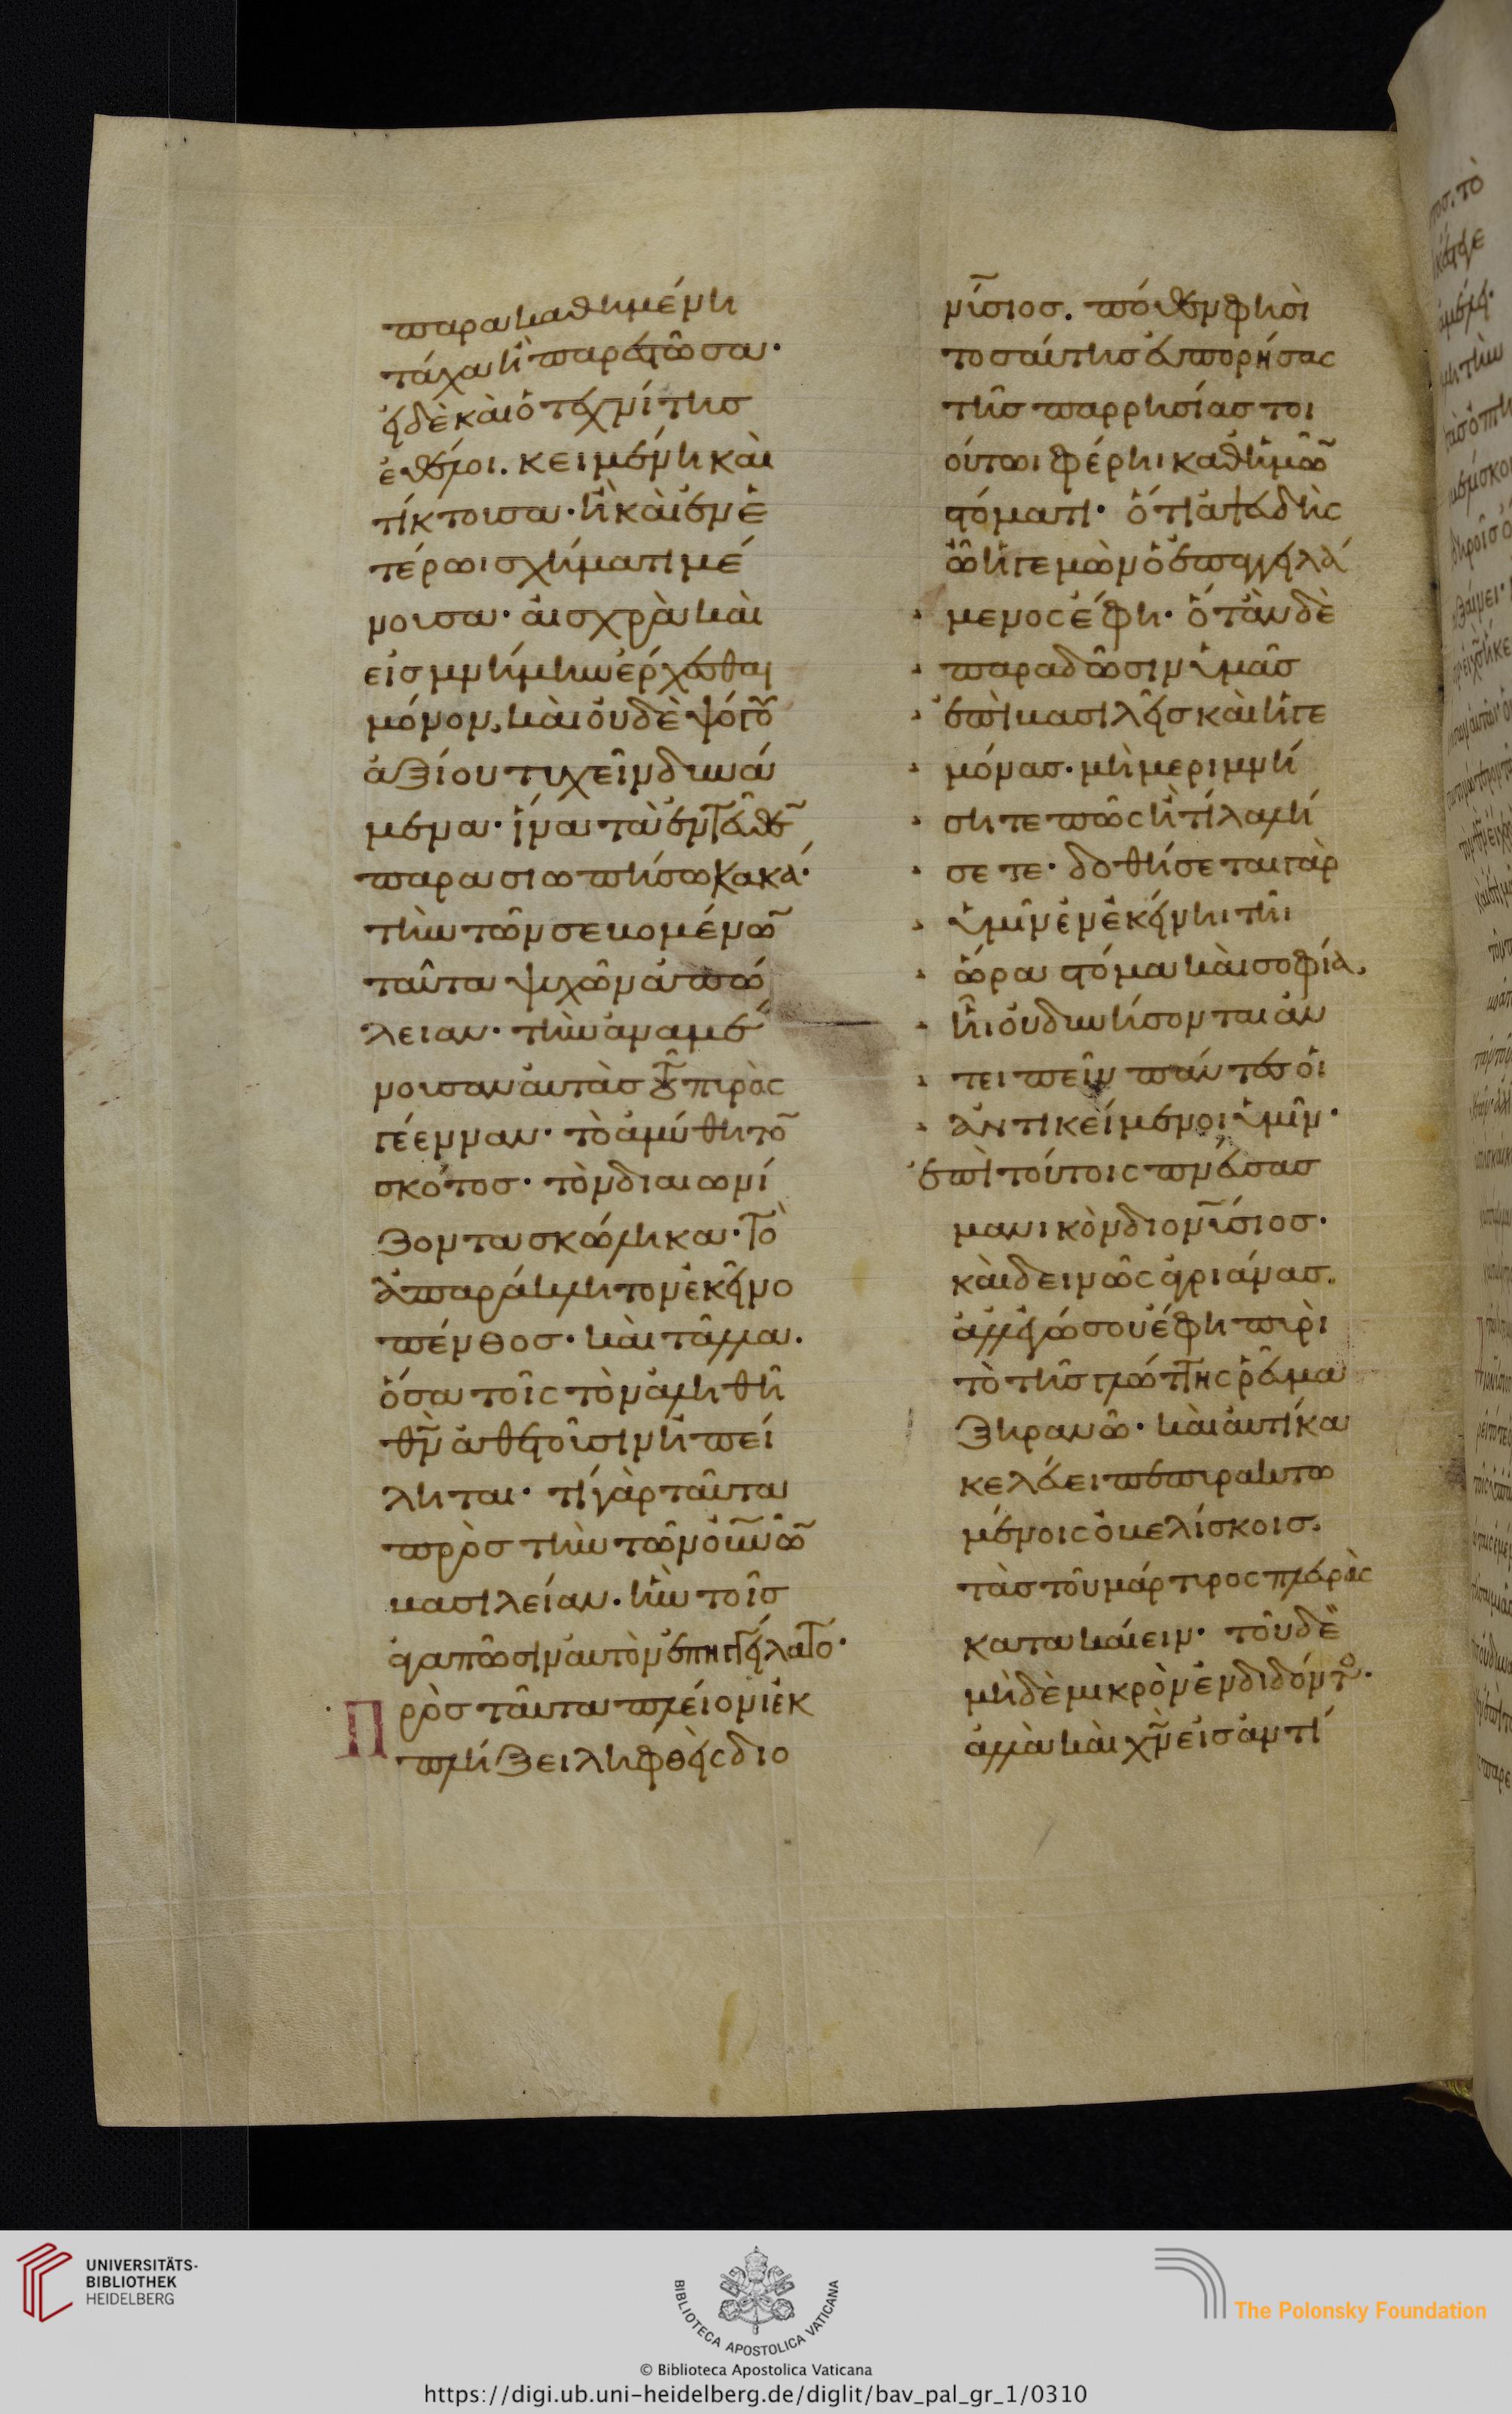 παρακαθημένη
τάχα ἢ παρεστῶσα·
εἰ δὲ καὶ ὁ τεχνίτης
ἐθέλοι. κειμένη καὶ
τίκτουσα· ἢ καὶ ἐν ἑ
τέρωι σχήματι μέ
νουσα· αἰσχρὰ καὶ
εἰς μνήμην ἔρχεσθαι
μόνον, καὶ οὐδὲ ψόγου
ἀξίου τυχεῖν δυνά
μενα· ἵνα τὰ ἐντεῦθεν
παρασιωπήσω κακά·
τὴν τῶν σεβομένων
ταῦτα ψυχῶν ἀπώ
λειαν· τὴν ἀναμέ
νουσαν αὐτὰς τοῦ πυρὸς
γέενναν· τὸ ἀμύθητον
σκότος· τὸν διαιωνί
ζοντα σκώληκα· τὸ
ἀπαράκλητον ἐκεῖνο
πένθος· καὶ τἄλλα.
ὅσα τοῖς τὸν ἀληθῆ
θν ἀθετοῦσιν ἠπεί
ληται· τί γὰρ ταῦτα
πρὸς τὴν τῶν οὐνῶν
βασιλείαν. ἣν τοῖς
ἀγαπῶσιν αὐτὸν ἐπηγγείλατο·
Πρὸς ταῦτα πλείονι ἐκ
πλήξει ληφθεὶς διο
νύσιος. πόθεν φησὶ
τοσαύτης εὐπορήσας
τῆς παρρησίας τοι
ούτωι φέρηι καθ' ἡμῶν
στόματι· ὅτι ἀψευδὴς
ὢν ἡγεμὼν ὁ ἐπαγγειλά
μενος ἔφη· ὅταν δὲ
παραδῶσιν ὑμᾶς
ἐπὶ βασιλεῖς καὶ ἡγε
μόνας· μὴ μεριμνή
σητε πῶς ἢ τί λαλή
σετε· δοθήσεται γὰρ
ὑμῖν ἐν ἐκείνηι τῆι
ὥρα στόμα καὶ σοφία.
ἧι οὐ δυνήσονται ἀν
τειπεῖν πάντες οἱ
ἀντικείμενοι ὑμῖν·
ἐπὶ τούτοις πνεύσας
μανικὸν διονύσιος·
καὶ δεινῶς ἀγριάνας.
ἀλλ' ἐγώ σου ἔφη πικρὶ
τὸ τῆς γλώττης ῥεῦμα
ξηρανῶ· καὶ αὐτίκα
κελεύει πεπυρακτω
μένοις ὀβελίσκοις.
τὰς τοῦ μάρτυρος πλευρὰς
κατακαίειν· τοῦ δὲ
μηδὲ μικρὸν ἐνδιδόντος·
ἀλλὰ καὶ χν εἰς ἀντί
UNIVERSITÄTS-
BIBLIOTHEK
HEIDELBERG
BIBLIOTECA APOSTOLICA VATICANA
© Biblioteca Apostolica Vaticana
The Polonsky Foundation
https://digi.ub.uni-heidelberg.de/diglit/bav_pal_gr_1/0310